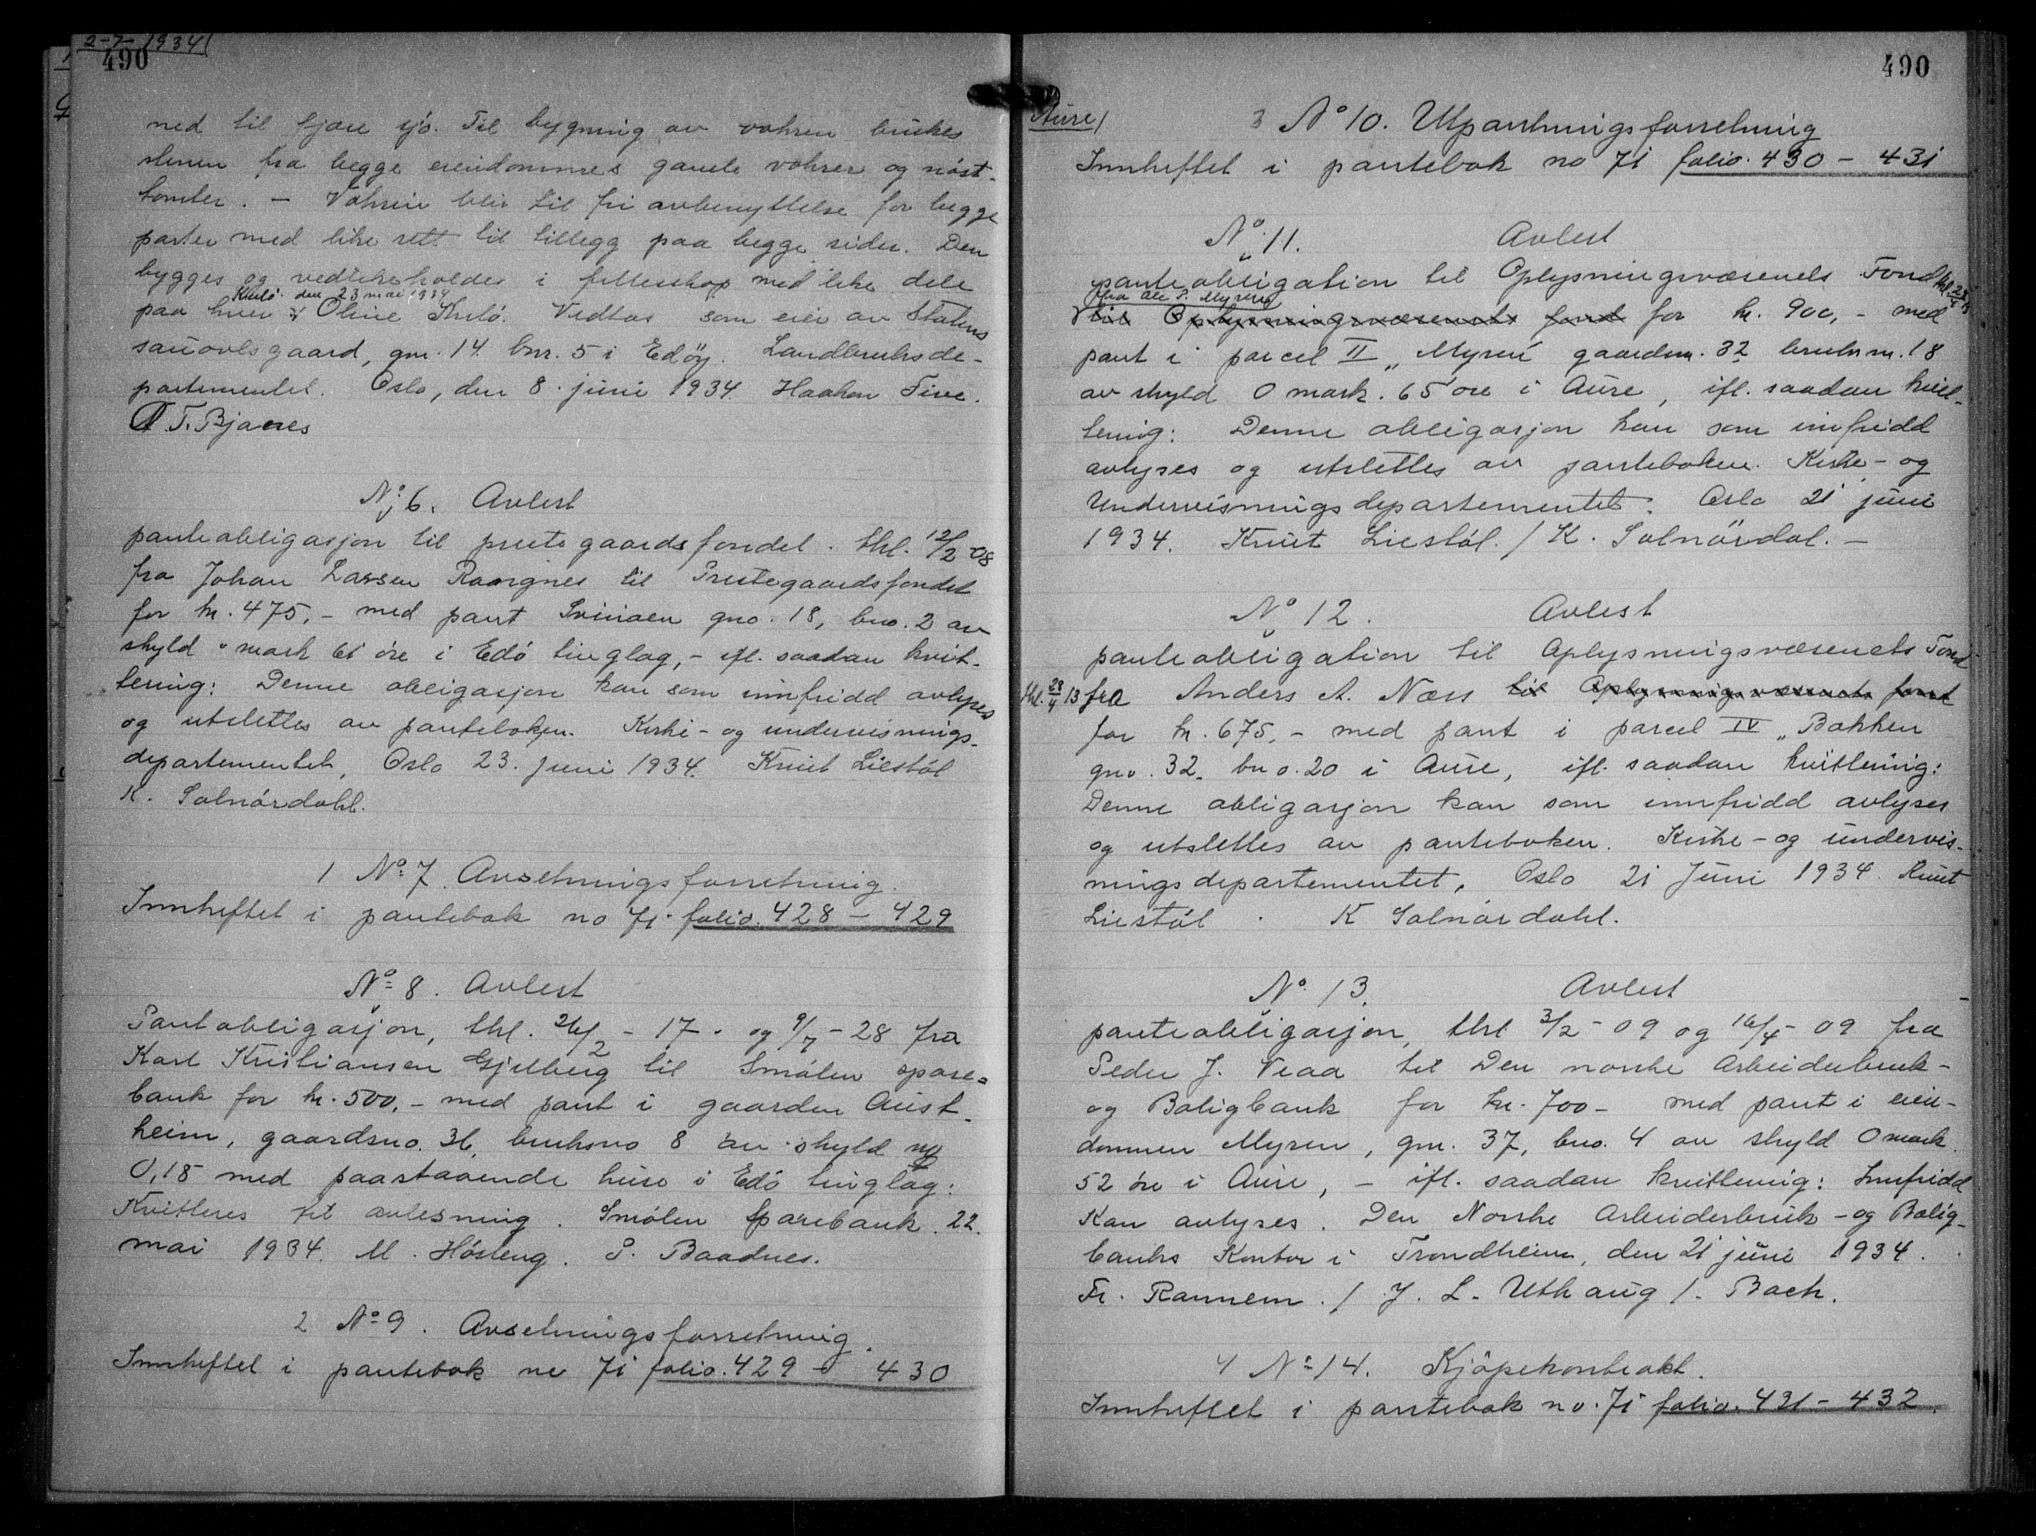 2-7-1934
490
ned til fjære sjö. Til bygning av vohren brukes
stenen fra begge eiendommes gamle vohrer og nöst-
tomter. - Vohren blir til fri avbenyttelse for begge
parter med like rett til tillegg paa begge sider. Den
bygges og vedlikeholdes i fellesskap med like dele
Kuilö den 23 mai 1934
paa hver Oline Kuilö. Vedtas som eier av Statens
sauavlsgaard, gnr. 14 bnr. 5 i Edöy. Landbruksde-
partementet. Oslo, den 8. juni 1934. Haakon Five.
T. Bjanes
No 6. Avlest
panteobligasjon til prestegaardsfondet. thl. 12/2 -08
fra Johan Larsen Raangnes til Prestegaardsfondet
for kr. 475,- med pant Svinaen gno. 18, bno. 2 av
skyld 0 mark 61 öre i Edö tinglag, - ifl. saadan kvit-
tering: Denne obligasjon kan som innfridd avlyses
og utslettes av panteboken. Kirke- og undervisnings-
departementet, Oslo 23. juni 1934. Knut Liestöl
K. Solnördahl.
1 No 7. Avsetningsforretning.
Innheftet i pantebok no 71 folio. 428 - 429
No 8. Avlest
Pantobligasjon, thl. 26/2 - 17 - og 9/7 - 28 fra
Karl Kristiansen Gjelberg til Smölen spare-
bank for kr. 500,- med pant i gaarden Aust-
heim, gaardsno. 36, bruksno 8 av skyld
0,18 med paastaaende huse i Edö tinglag:
Kvitteres til avlesning. Smölen Sparebank. 22.
mai 1934. M. Hösteng. P. Baadnes.
2 No 9. Avsetningsforretning.
Innheftet i pantebok no 71 folio. 429 - 430
490
Aure/
3 No 10. Utpantningsforretning
Innheftet i pantebok no 71 folio. 430 - 431
No 11. Avlest
panteobligation til Oplysningsvæsenets Fond thl. 28/4 13
fra Ole P. Myren
til Oplysningsvæsenets fond for kr. 900,- med
pant i parcel II „Myren gaardsnr. 32 bruksnr. 18
av skyld 0 mark. 65 öre i Aure, ifl. saadan kvit-
tering: Denne obligasjon kan som innfridd
avlyses og utslettes av panteboken. Kirke- og
Undervisningsdepartementet. Oslo 21 juni
1934. Knut Liestöl. / K. Solnördal. -
No 12. Avlest
panteobligation til Oplysningsvæsenets Fond
thl. 28/4 13 fra Anders A. Næss til Oplysningsvæsenets fond
for kr. 675,- med pant i parcel IV „Bakken
gno. 32. bno. 20 i Aure, ifl. saadan kvittering:
Denne obligasjon kan som innfridd avlyses
og utslettes av panteboken. Kirke- og undervis-
ningsdepartementet, Oslo 21 Juni 1934. Knut
Liestöl. K Solnördahl.
No 13. Avlest
panteobligasjon, thl 3/2 - 09 og 16/4 - 09 fra
Peder J. Viaa til Den norske Arbeiderbruk-
og Boligbank for kr. 700 - med pant i eien-
dommen Myren, gnr. 37, bno. 4 av skyld 0 mark.
52 öre i Aure, - ifl. saadan kvittering: Innfridd
Kan avlyses. Den Norske Arbeiderbruk- og Bolig-
banks Kontor i Trondheim, den 21 juni 1934.
Fr. Rannem. / J. L. Uthaug /. Bach.
4 No 14. Kjöpekontrakt.
Innheftet i pantebok no. 71 folio. 431 - 432.